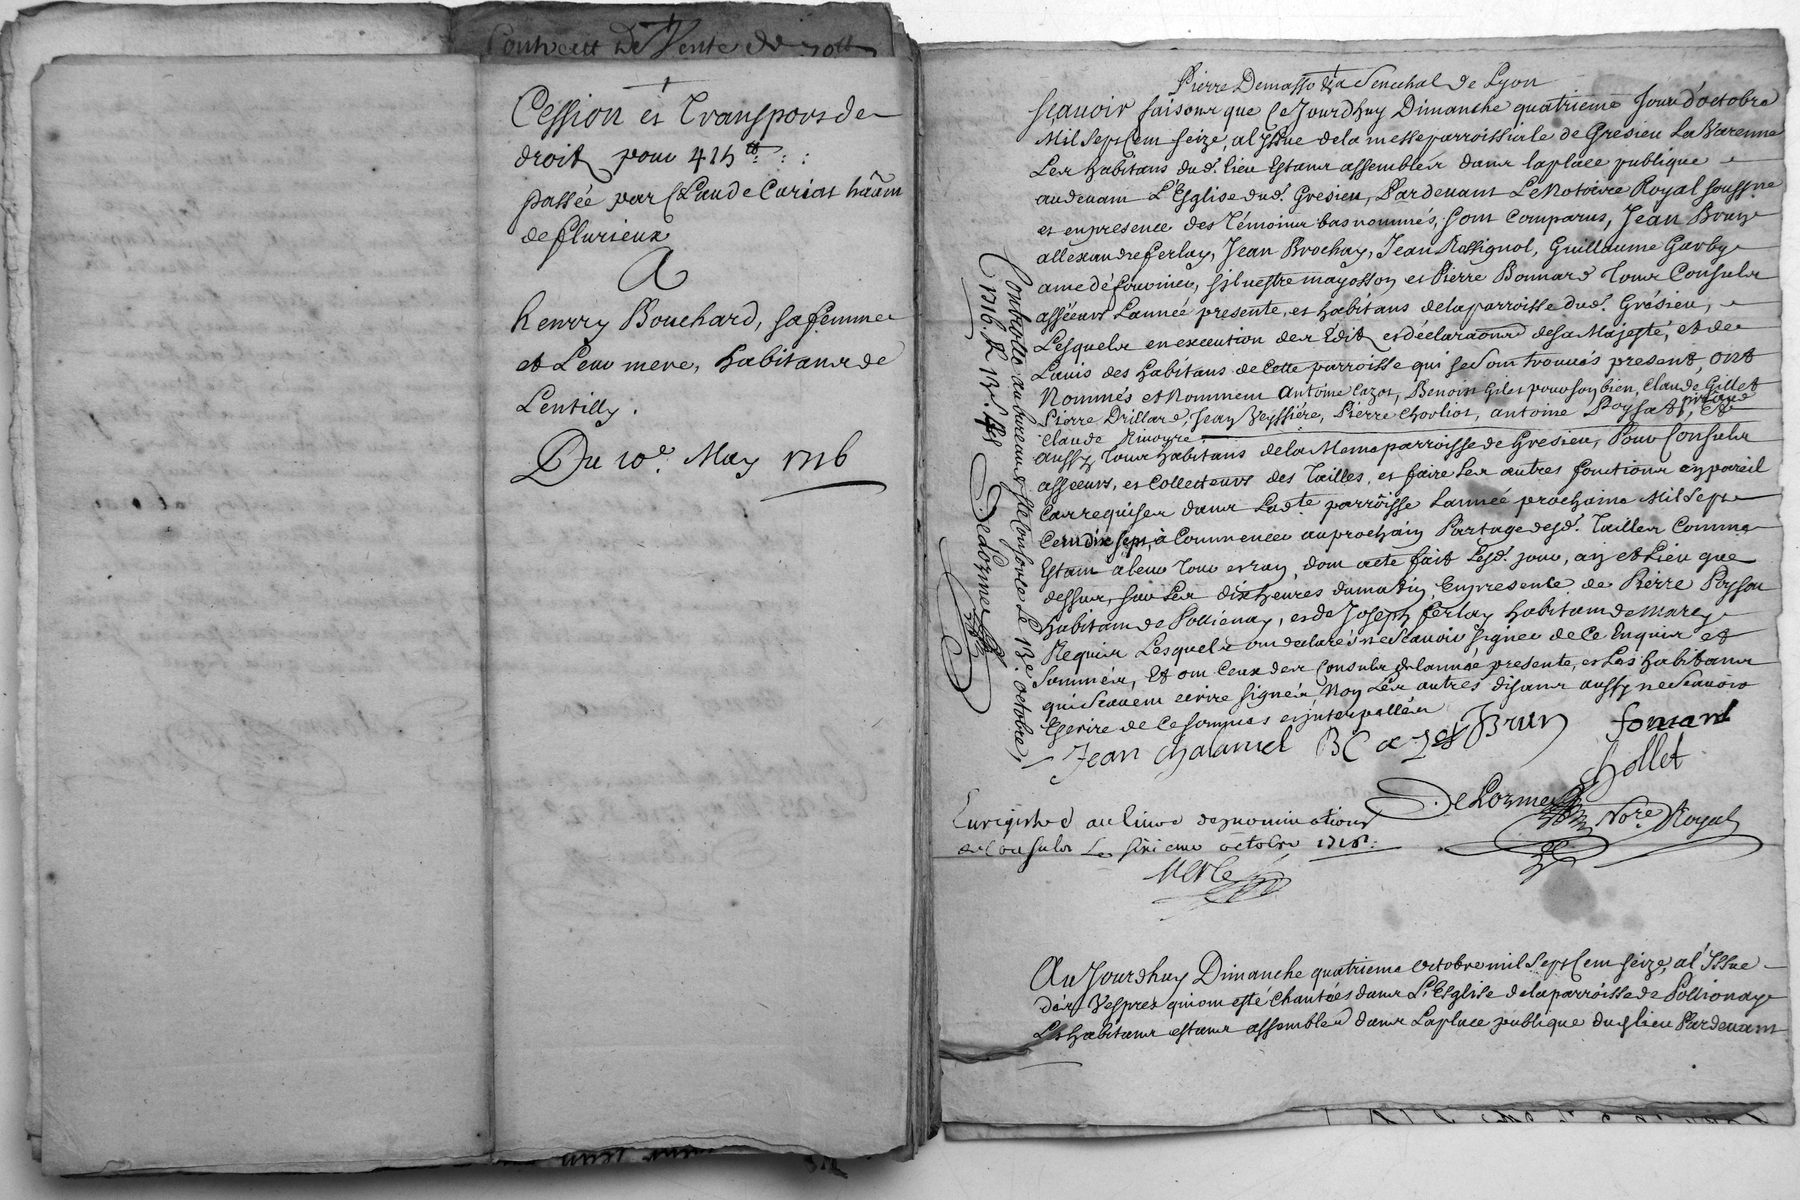 Contract De Vente de
Cession et Transport de
droit pour 415 tt
passée par Claude Curiat hãm
de flurieux
A
henrry Bouchard, sa femme
et Leur mere, habitans de
Lentilly.
Du 10e. May 1716
Pierre Demasso &a Senechal de Lyon
scauoir faisons que Ce Jourdhuy Dimanche quatrieme Jour d'octobre
Mil sept Cent seize, al yssue de la messe parroissiale de Gresieu La Varenne
Les habitans dud. lieu Estans assemblés dans la place publique
au deuant L'Esglise dud. Gresieu, Pardeuant Le Notaire Royal soussné
et en presence des Témoins bas nommés, sont Comparus, Jean Brun
allexandre ferlay, Jean Brochay, Jean Rossignol, Guillaume Garby
amedé fouvined, siluestre mayosson et Pierre Bonnard tous Consuls
asséeurs Lannée presente, et habitans de la parroisse dud. Grésieu,
Lesquels en execution des Édit et déclaraons de sa Majesté, et de
Lauis des habitans de Cette parroisse qui se sont trouués present, ont
Nommés et Nomment Antoine Cazot, Benoist Gilet pour son bien, Claude Gillet
Pierre Drillard, Jean Veyssiére, Pierre Chorliot, antoine Poysat, &
Claude Rivoyre
aussy tous habitans de la Meme parroisse de Gresieu, Pour Consuls
asséeurs, et Collecteurs des Tailles, et faire Les autres fonctions en pareil
Cas requises dans Ladte parroisse Lannée prochaine Mil Sept
Cent dix sept, à Commencer au prochain Partage desd. Tailles Comme
Estant a leur tour et ran, dont acte fait Lesd. jour, an et Lieu que
dessus, sur Les dix heures du matin, En presence de Pierre Poysat
habitant de Pollienay, et de Joseph ferlay habitant de Marcy
Requis Lesquels ont declarés ne scauoir signer de Ce Enquis et
Sommés, Et ont Ceux des Consuls de lannée presente, et Les habitans
qui scauent ecrire signés Non Les autres disans aussy ne Scauoir
Escrire de Ce sommés et interpellés
Jean Chalamel B C Brun fonian
hollet
DeLorme Nore Royal
Controllé au bureau de Ste Consorce Le 13e. octobre
1716. R 13 s. 4 d DeLorme
Enregistré au liure de nominations
de Consuls Le sixieme octobre 1716.
Merle
Au Jourdhuy Dimanche quatrieme octobre mil Sept Cent seize, al'Issue
des Vespres qui ont esté Chantées dans L'Esglise de la parroisse de Pollionay
Les habitans estans assemblés dans La place publique dud lieu Pardeuant